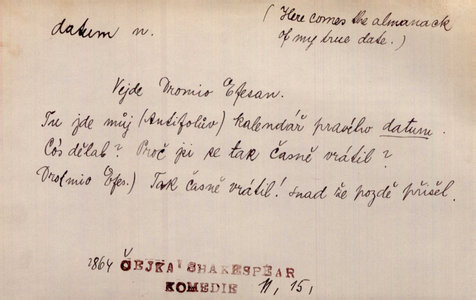 datum n.
(Here comes the almanack
of my true date.)
Vejde Dromio Efesan.
Tu jde můj (Antifolův) kalendář pravého datum.
Cós dělal? Proč jsi se tak časně vrátil?
Dro(mio Efes.) Tak časně vrátil! snad že pozdě přišel.
1864 ČEJKA SHAKESPEAR
KOMEDIE II, 15,